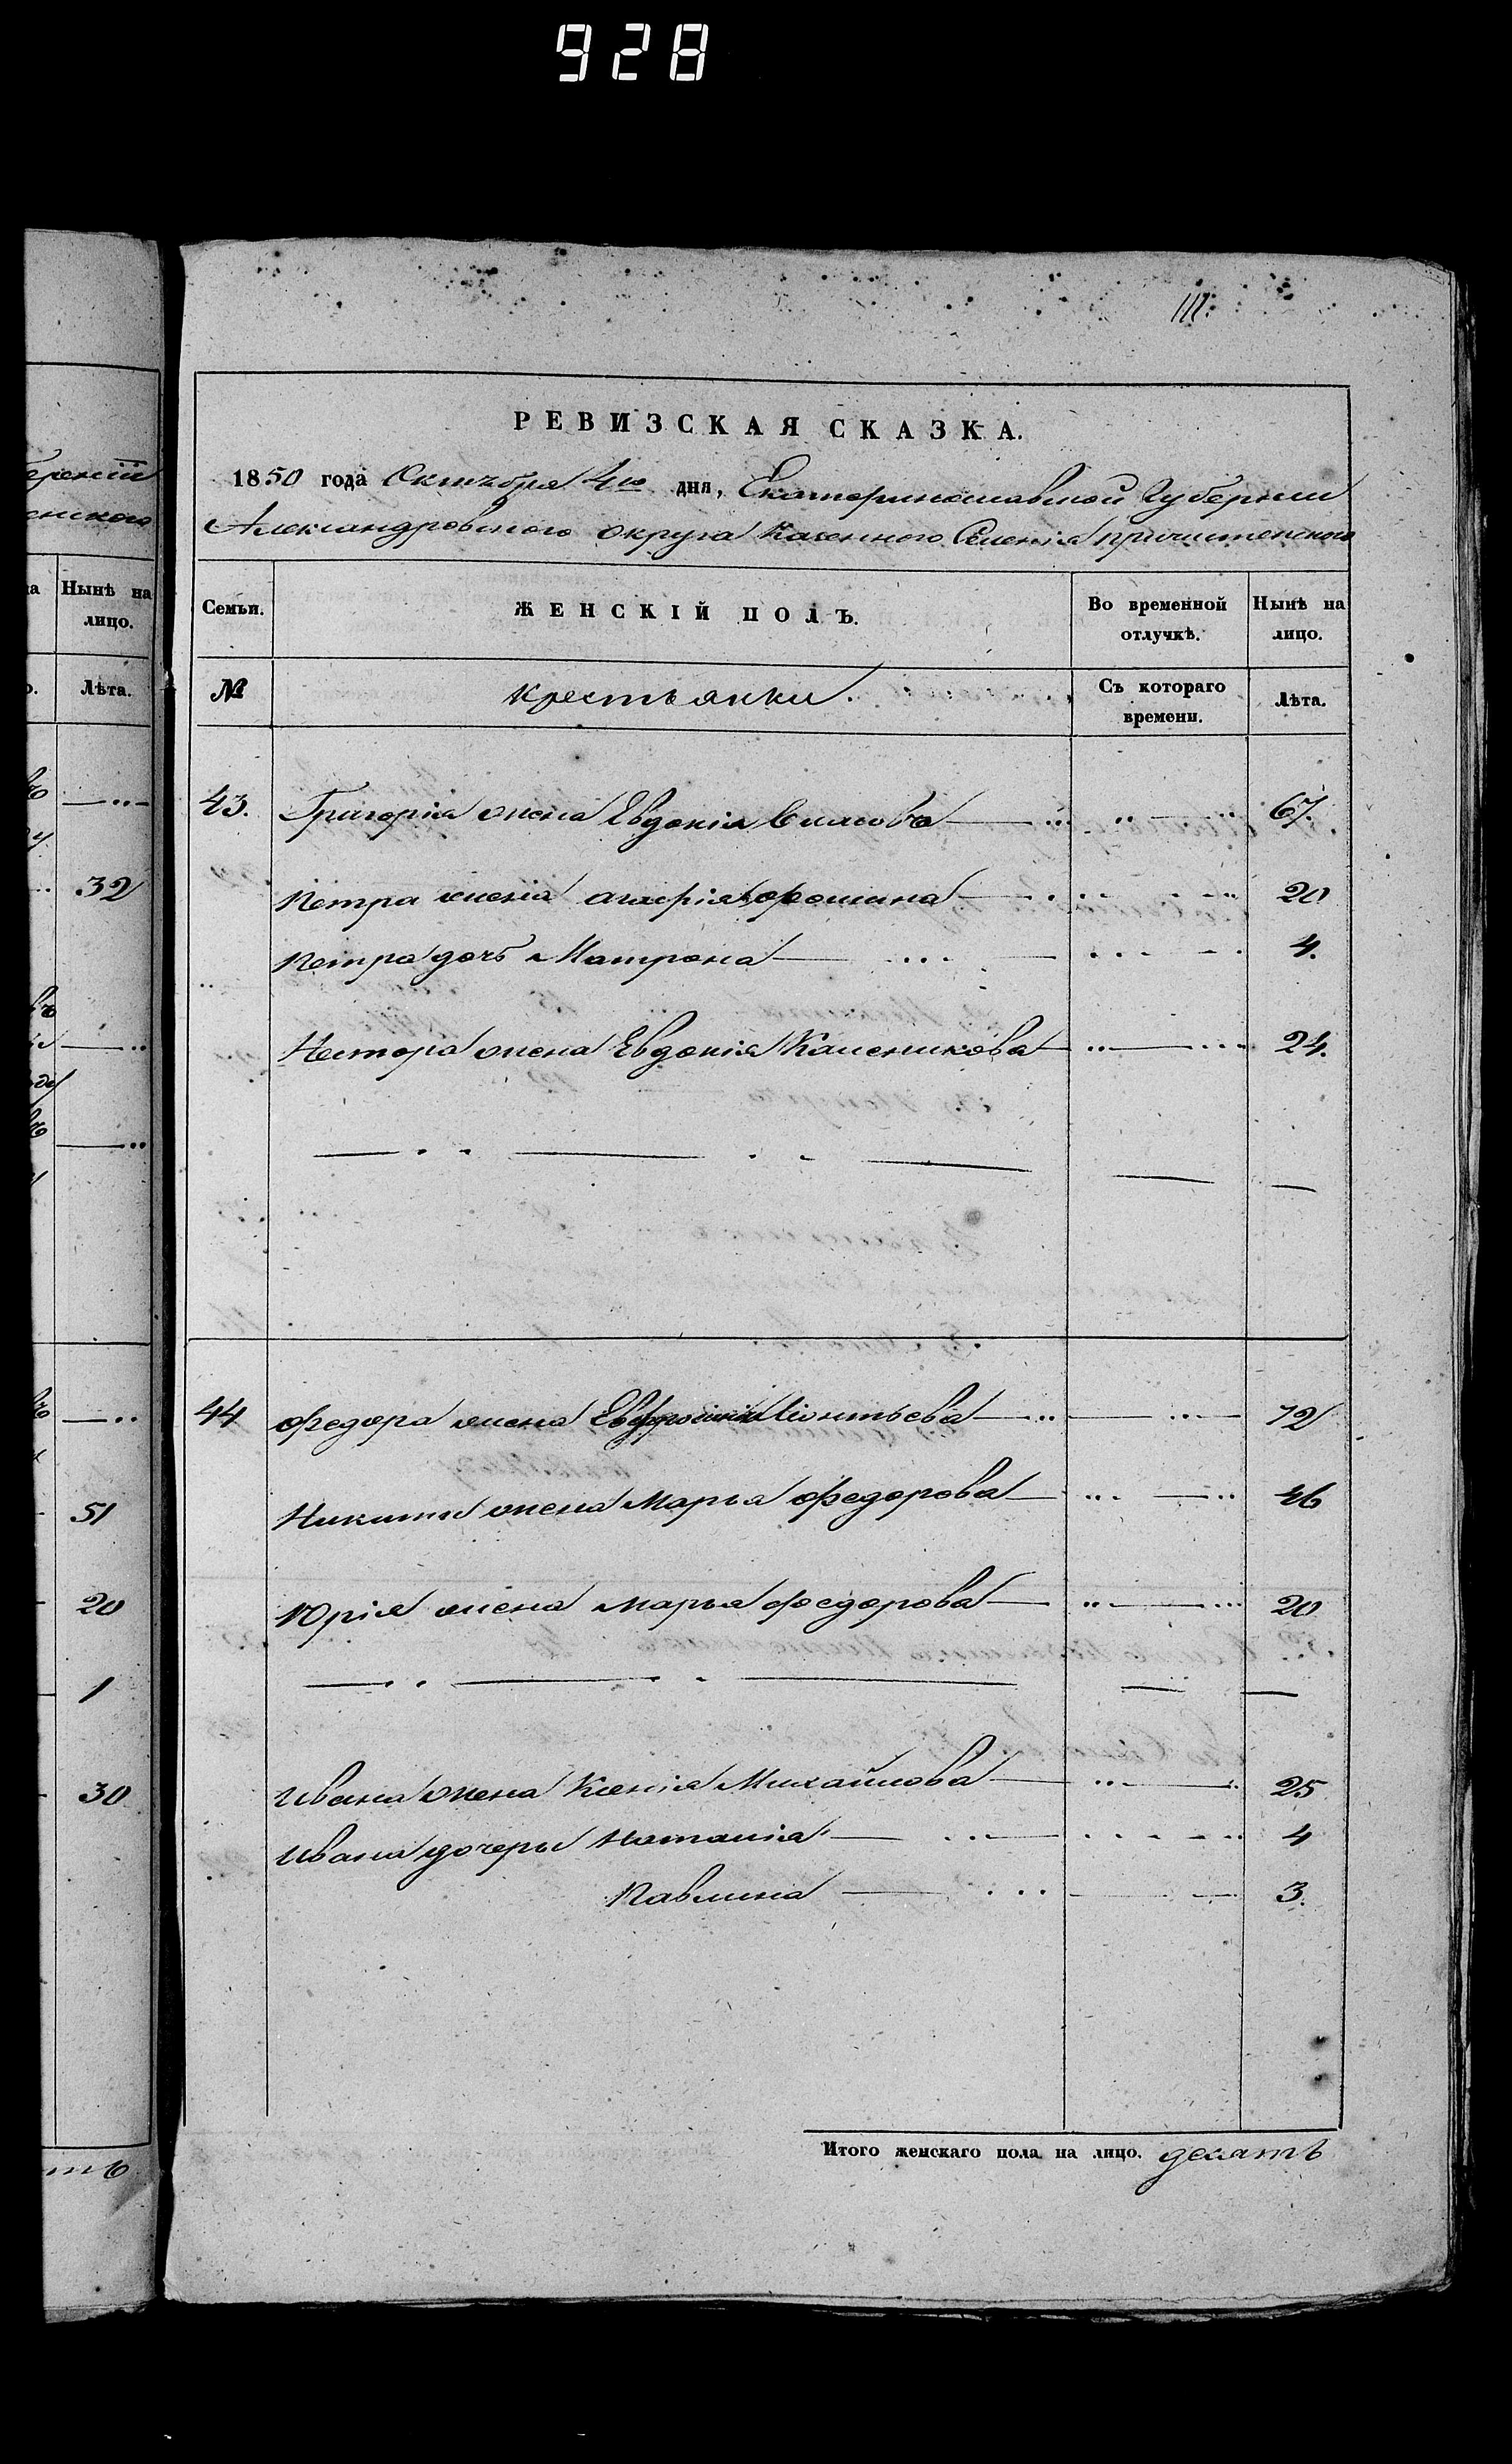 928
111.
РЕВИЗСКАЯ СКАЗКА.
1850 года Октября 4го дня, Екатеринославской Губернии
Александровского округа Казенного Селенія Пречистенского
Семьи.
ЖЕНСКІЙ ПОЛЪ.
Во временной отлучкѣ.
Нынѣ на лицо.
№
Крестьянки.
Съ котораго времени.
Лѣта.
43. Григорія жена Евдокія Власова 67.
Петра жена Агафія 20
Петра дочь Матрона 4.
Нестора жена Евдокія Каленикова 24.
44 Федора жена Евфросинія Леонтьева 72
Никиты жена Марья Федорова 46
Юрія жена Марья Федорова 20
Ивана жена Ксенія Михайлова 25
Ивана дочери Наталія 4
Павлина 3.
Итого женскаго пола на лицо. десять
Нынѣ на
лицо.
Лѣта.
32
51
20
1
30